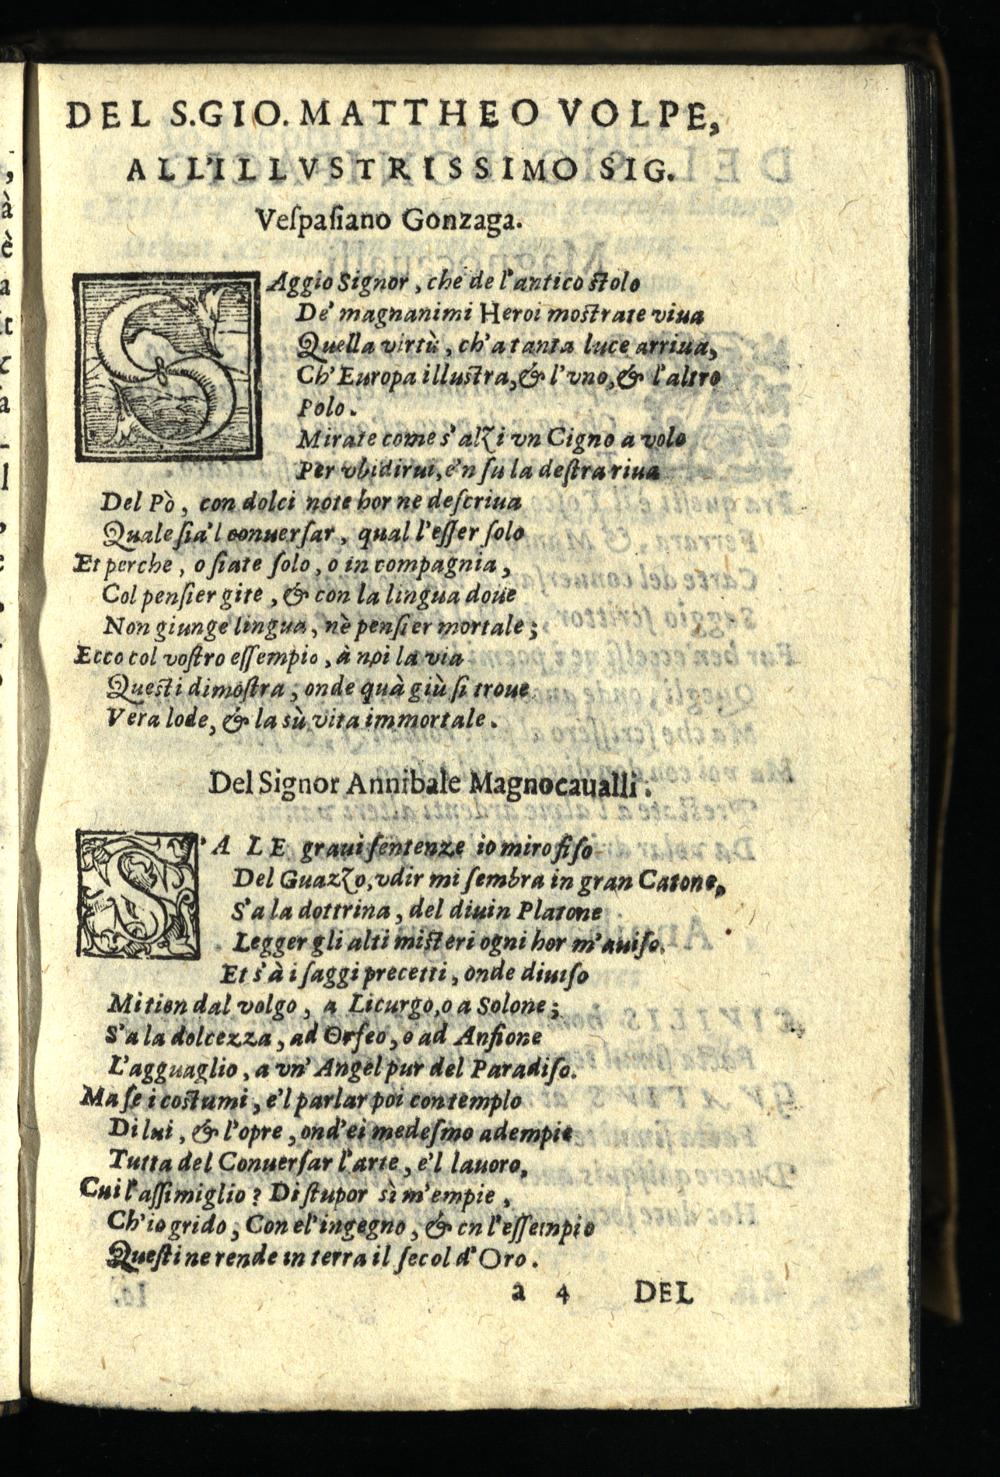 DEL S. GIO. MATTHEO VOLPE,
ALL'ILLVSTRISSIMO SIG.
Veſpaſiano Gonzaga.
SAggio Signor, che de l'antico ſtolo
De' magnanimi Heroi moſtrate viua
Quella virtù, ch'a tanta luce arriua,
Ch'Europa illuſtra, & l'vno, & l'altro
Polo.
Mirate come s'alzi vn Cigno a volo
Per vbidirui, e'n ſu la deſtra riua
Del Pò, con dolci note hor ne deſcriua
Quale ſia'l conuerſar, qual l'eſſer ſolo
Et perche, o ſiate ſolo, o in compagnia,
Col penſier gite, & con la lingua doue
Non giunge lingua, nè penſier mortale;
Ecco col voſtro eſſempio, à noi la via
Queſti dimoſtra, onde quà giù ſi troue
Vera lode, & la sù vita immortale.
Del Signor Annibale Magnocaualli.
SA LE graui ſentenze io miro fiſo
Del Guazzo, vdir mi ſembra in gran Catone,
S'a la dottrina, del diuin Platone
Legger gli alti miſteri ogni hor m'auiſo.
Et s'à i ſaggi precetti, onde diuiſo
Mi tien dal volgo, a Licurgo, o a Solone;
S'a la dolcezza, ad Orfeo, o ad Anfione
L'agguaglio, a vn' Angel pur del Paradiſo.
Ma ſe i coſtumi, e'l parlar poi contemplo
Di lui, & l'opre, ond'ei medeſmo adempie
Tutta del Conuerſar l'arte, e'l lauoro,
Cui l'aſſimiglio? Di ſtupor sì m'empie,
Ch'io grido, Con el'ingegno, & cn l'eſſempio
Queſti ne rende in terra il ſecol d'Oro.
a 4 DEL